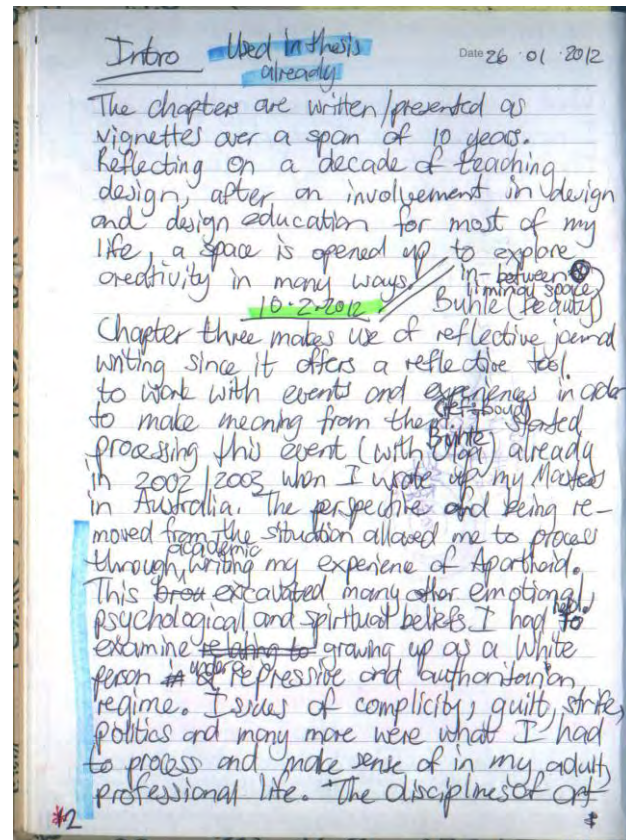 Intro Used in thesis
already
Date 26 · 01 · 2012
The chapters are written/presented as
vignettes over a span of 10 years.
Reflecting on a decade of teaching
design, after an involvement in design
and design education for most of my
life, a space is opened up to explore
creativity in many ways. in-between
liminal space
10·2·2012 Buhle (beauty)
Chapter three makes use of reflective journal
writing since it offers a reflective tool
to work with events and experiences in order
to make meaning from them. I started
Buhle
processing this event (with) already
in 2002/2003 when I wrote up my Masters
in Australia. The perspective of being re-
moved from the situation allowed me to process
academic
through writing my experiene of Apartheid.
This excavated many other emotional,
psychological and spiritual beliefs I had held. to
examine relating to growing up as a white
under
person in a repressive and authoritarian
regime. Issues of complicity, guilt, strife,
politics and many more were what I had
to process and make sense of in my adult,
professional life. The disciplines of art
*2